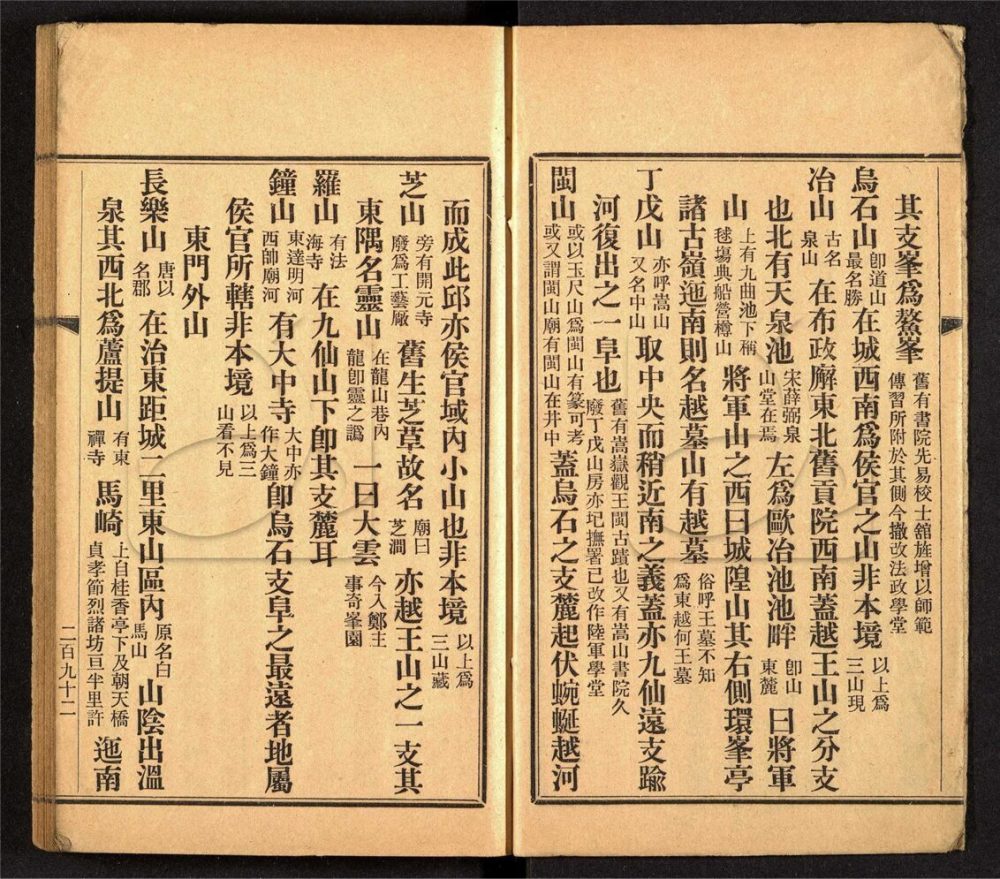 其支峯爲鰲峯舊有書院先易校士舘旌增以師範傳習所附於其側今撤改法政學堂
烏石山卽道山最名勝在城西南爲侯官之山非本境以上爲三山現
冶山古名泉山在布政廨東北舊貢院西南蓋越王山之分支
也北有天泉池宋薛弼泉山堂在焉左爲歐冶池池畔卽山東麓曰將軍
山上有九曲池下稱毬塲典船營樽山將軍山之西曰城隍山其右側環峯亭
諸古嶺迤南則名越墓山有越墓俗呼王墓不知爲東越何王墓
丁戊山亦呼嵩山又名中山取中央而稍近南之義蓋亦九仙遠支踰
河復出之一阜也舊有嵩嶽觀王閩古蹟也又有嵩山書院久廢丁戊山房亦圮撫署己改作陸軍學堂
閩山或以玉尺山爲閩山有篆可考或又謂閩山廟有閩山在井中蓋烏石之支麓起伏蜿蜒越河
而成此邱亦侯官域內小山也非本境以上爲三山藏
芝山旁有開元寺廢爲工藝厰舊生芝草故名廟曰芝澗亦越王山之一支其
東隅名靈山在龍山巷內龍卽靈之譌一曰大雲今入鄭主事奇峯園
羅山有法海寺在九仙山下卽其支麓耳
鐘山東達明河西帥廟河有大中寺大中亦作大鐘卽烏石支阜之最遠者地屬
侯官所轄非本境以上爲三山看不見
東門外山
長樂山唐以名郡在治東距城二里東山區內原名白馬山山陰出溫
泉其西北爲蘆提山有東禪寺馬崎上自桂香亭下及朝天橋貞孝節烈諸坊亘半里許迤南
二百九十二